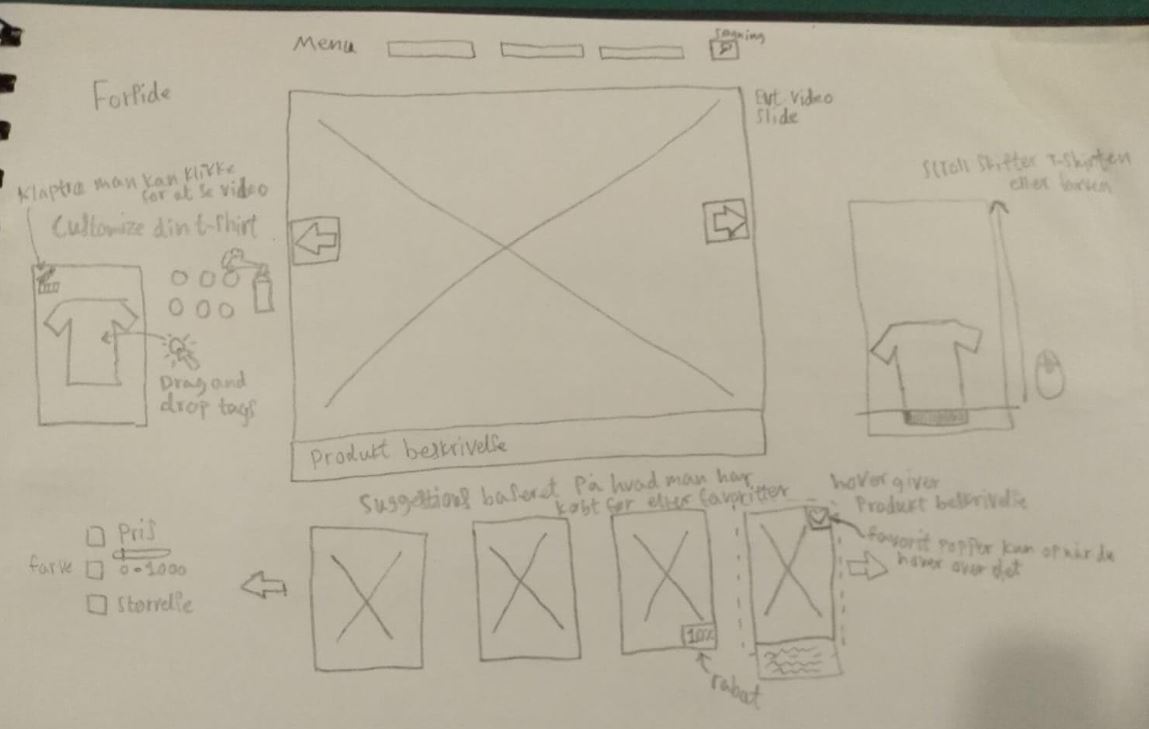 Menu
søgning
Forside
Evt. video
slide
Klaptræ man kan klikke
for at se video
Customize din t-shirt
Scroll skifter T-shirten
eller farven
Drag and
drop tags
Produkt beskrivelse
Suggestions baseret På hvad man har
købt før eller favoritter
hover giver
Produkt beskrivelse
favorit popper kun op når du
hover over det
Pris
farve
0-1000
størrelse
10%
rabat